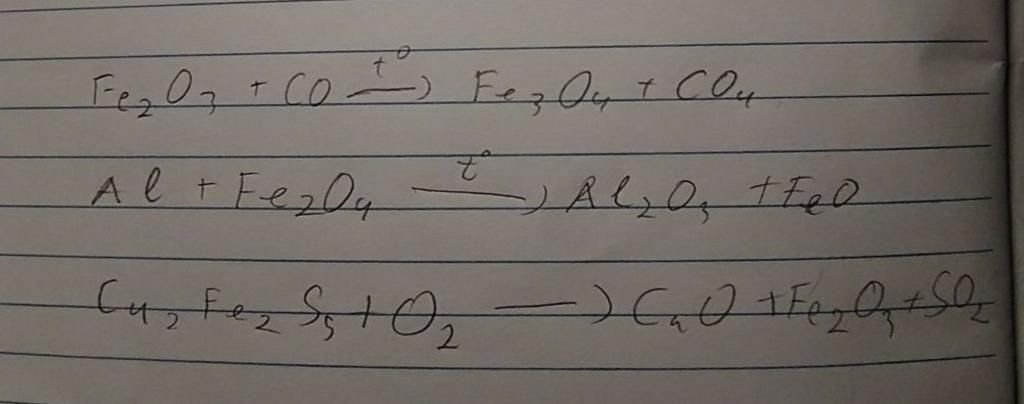 Fe₂O₃ + CO —t°→ Fe₃O₄ + CO₄
Al + Fe₂O₄ —t°→ Al₂O₃ + FeO
Cu₂Fe₂S₅ + O₂ ⟶ CuO + Fe₂O₃ + SO₂